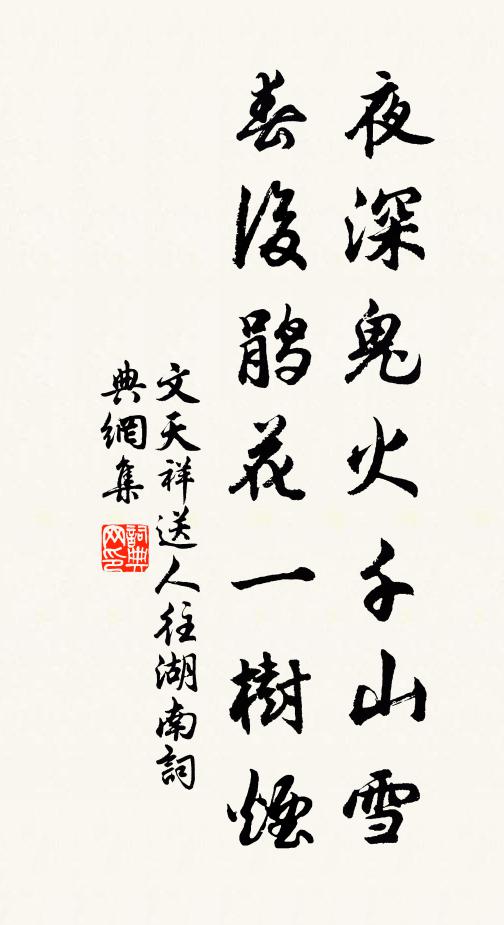 夜深鬼火千山雪
春後鹃花一樹煙
文天祥送人往湖南詞
典網集
詞典
网印